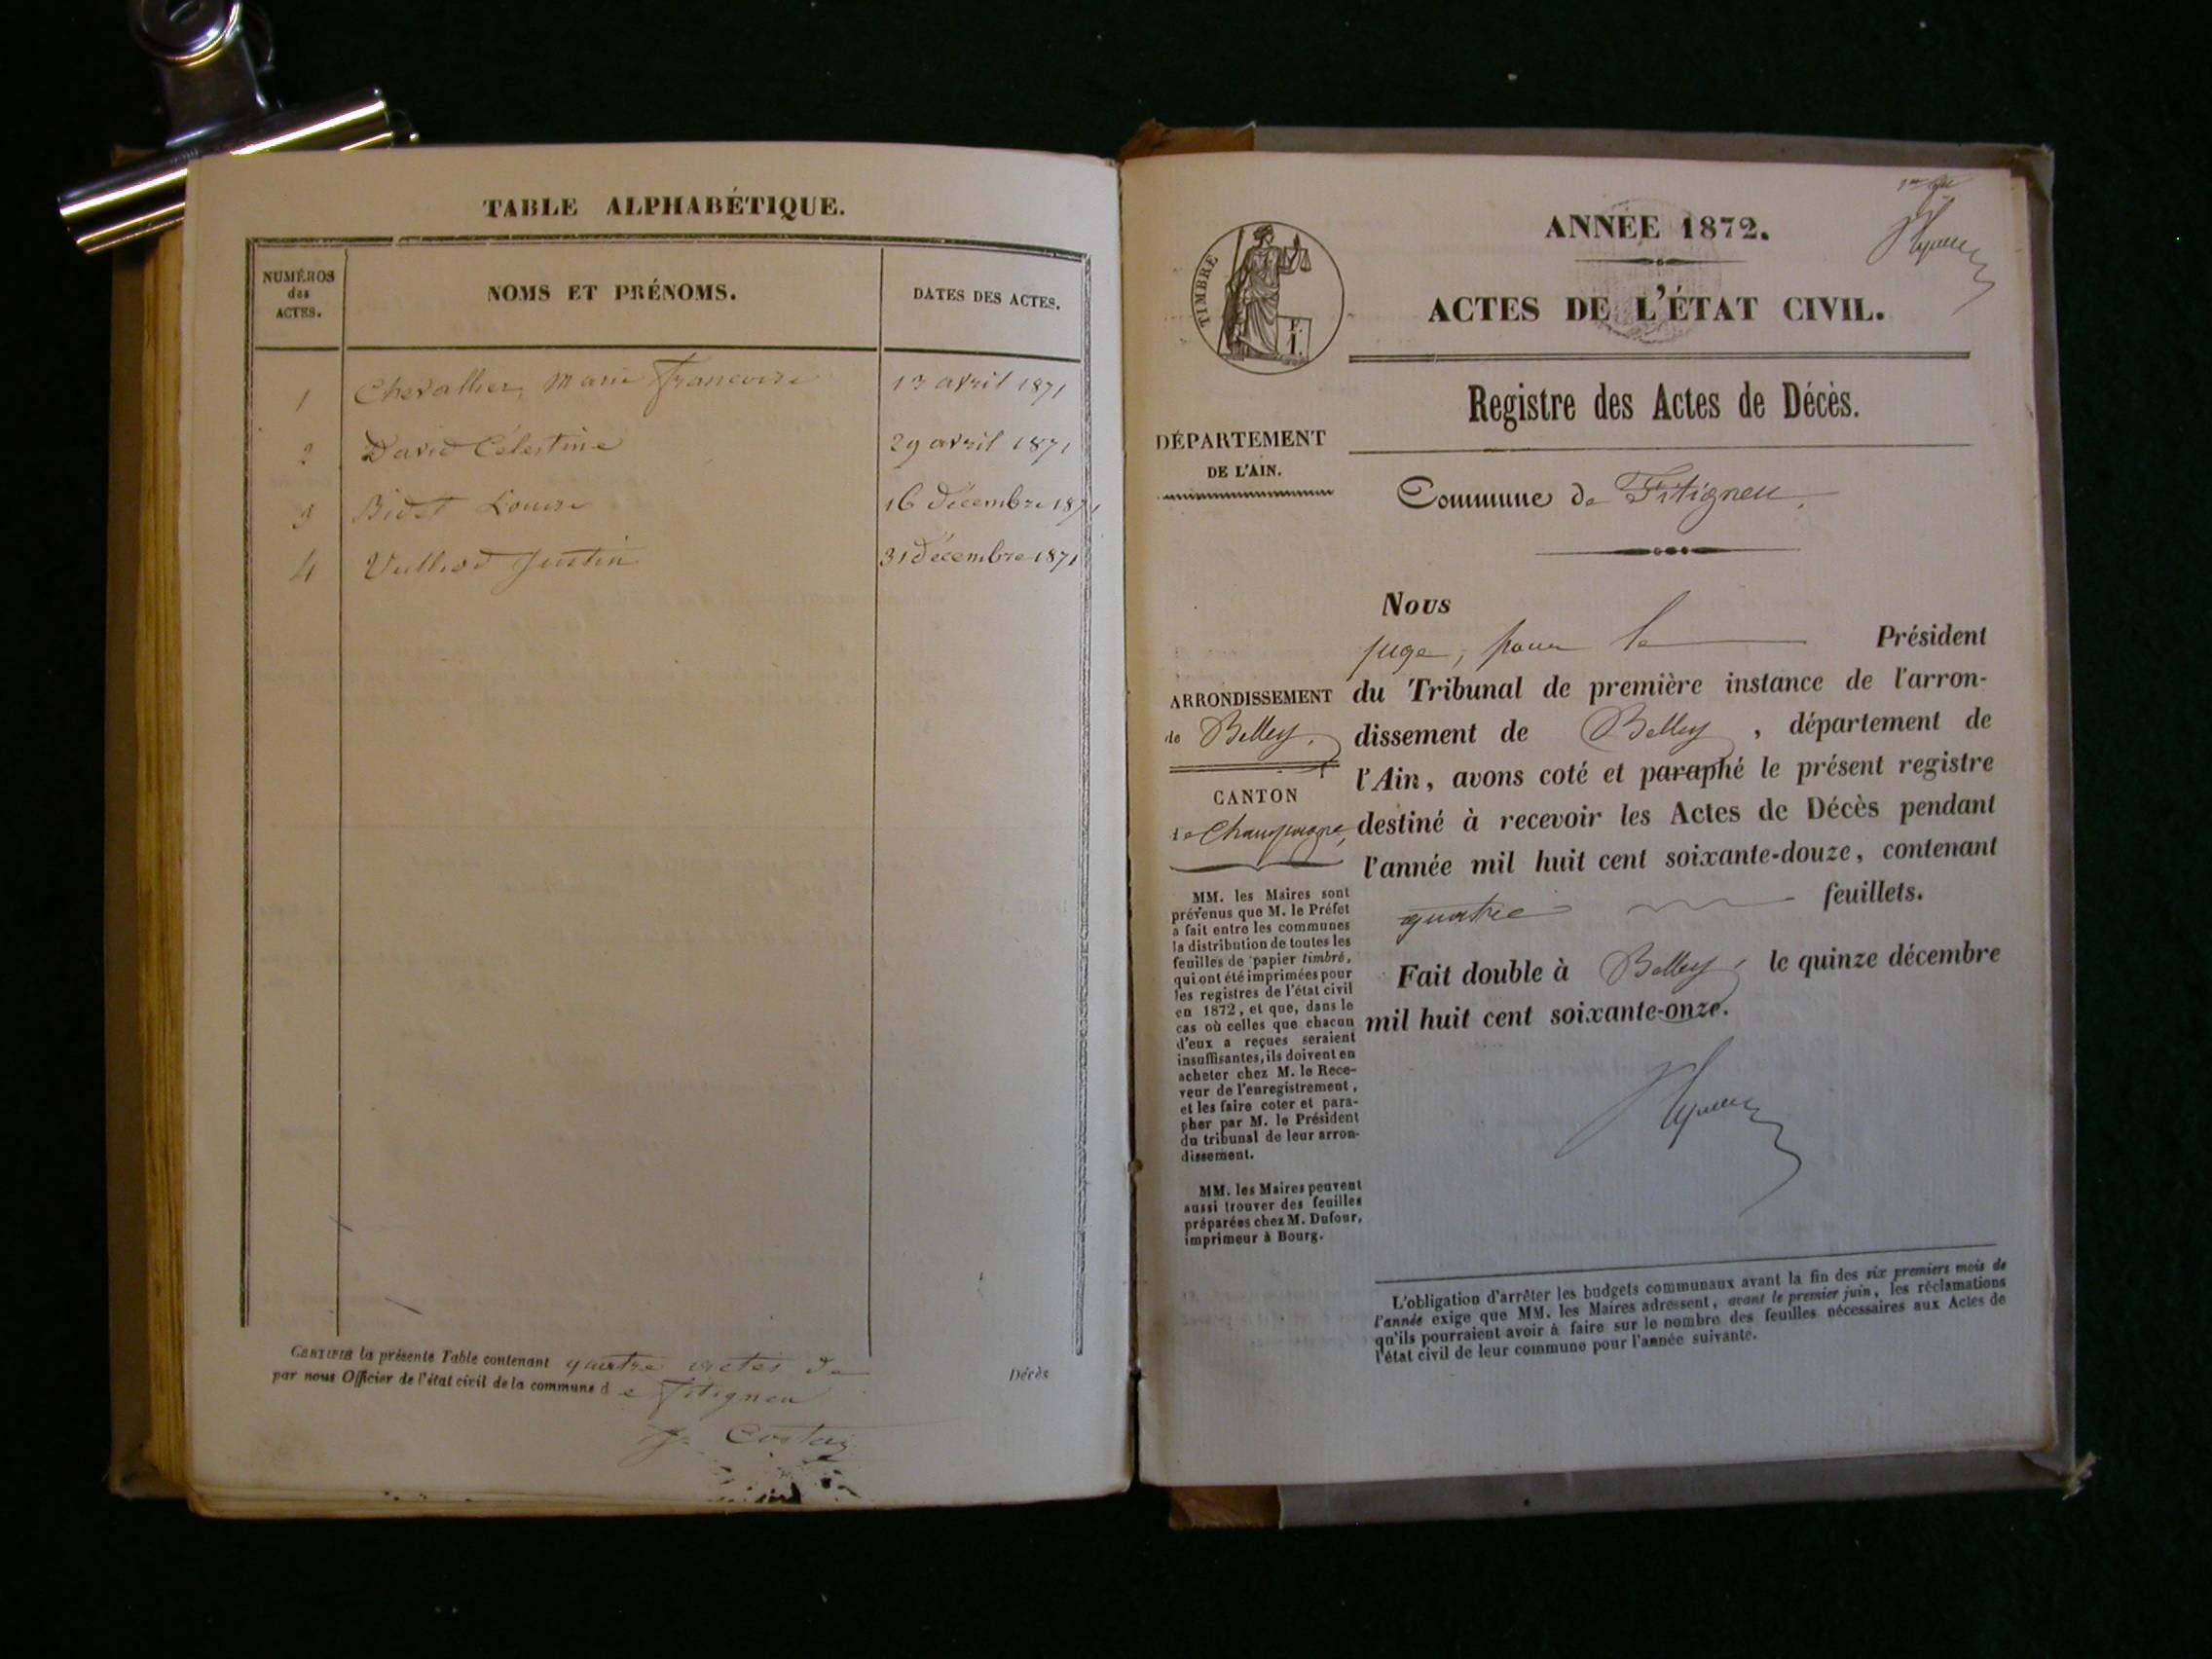 TABLE ALPHABÉTIQUE.
NUMÉROS
des
ACTES.
NOMS ET PRÉNOMS.
DATES DES ACTES.
1 Chevallier, Marie Francoise 13 avril 1871
2 David Célestine 29 avril 1871
3 Bidet Louise 16 décembre 1871
4 Vulliod Justin 31 décembre 1871
CERTIFIÉ la présente Table contenant quatre actes de Décès
par nous Officier de l'état civil de la commune de Fitigneu
TIMBRE
ANNÉE 1872.
ACTES DE L'ÉTAT CIVIL.
Registre des Actes de Décès.
DÉPARTEMENT
DE L'AIN.
Commune de Fitigneu.
Nous
juge, pour le Président
ARRONDISSEMENT
de Belley.
CANTON
de Champagne,
du Tribunal de première instance de l'arron-
dissement de Belley, département de
l'Ain, avons coté et paraphé le présent registre
destiné à recevoir les Actes de Décès pendant
l'année mil huit cent soixante-douze, contenant
quatre feuillets.
Fait double à Belley, le quinze décembre
mil huit cent soixante-onze.
MM. les Maires sont
prévenus que M. le Préfet
a fait entre les communes
la distribution de toutes les
feuilles de papier timbré,
qui ont été imprimées pour
les registres de l'état civil
en 1872, et que, dans le
cas où celles que chacun
d'eux a reçues seraient
insuffisantes, ils doivent en
acheter chez M. le Rece-
veur de l'enregistrement,
et les faire coter et para-
pher par M. le Président
du tribunal de leur arron-
dissement.
MM. les Maires peuvent
aussi trouver des feuilles
préparées chez M. Dufour,
imprimeur à Bourg.
L'obligation d'arrêter les budgets communaux avant la fin des six premiers mois de
l'année exige que MM. les Maires adressent, avant le premier juin, les réclamations
qu'ils pourraient avoir à faire sur le nombre des feuilles nécessaires aux Actes de
l'état civil de leur commune pour l'année suivante.